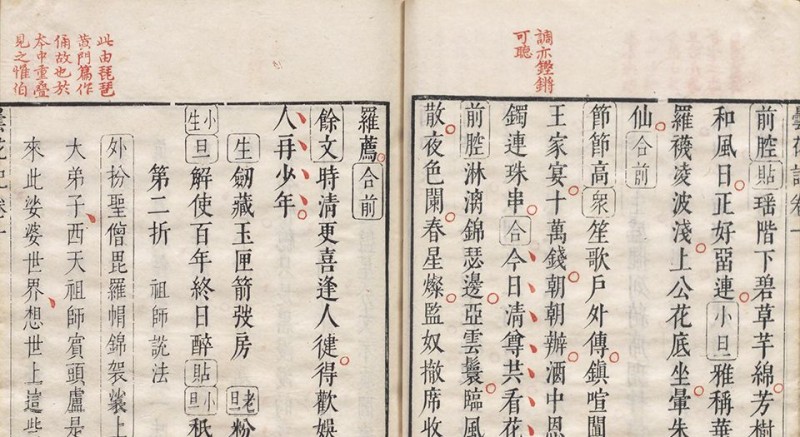 調亦鏗鏘
可聽
前腔貼瑶階下碧草芊綿芳樹
和風日正好畱連小旦雅稱華
羅襪凌波淺上公花底坐暈朱
仙合前
節節高衆笙歌戶外傳鎮喧闐
王家宴十萬錢朝朝辦酒中恩
鐲連珠串合今日清尊共看花
前腔淋漓錦瑟邊亞雲鬟臨風
散夜色闌春星燦監奴撤席收
此由琵琶
黃門篇作
俑故也於
本中重疊
見之懼伯
羅薦合前
餘文時清更喜逢人健得歡娛
人再少年
生劒藏玉匣箭弢房老旦粉
小生旦解使百年終日醉貼小旦秪
第二折 祖師說法
外扮聖僧毘羅帽錦袈裟上
大弟子西天祖師賓頭盧是
來此娑婆世界想世上這些